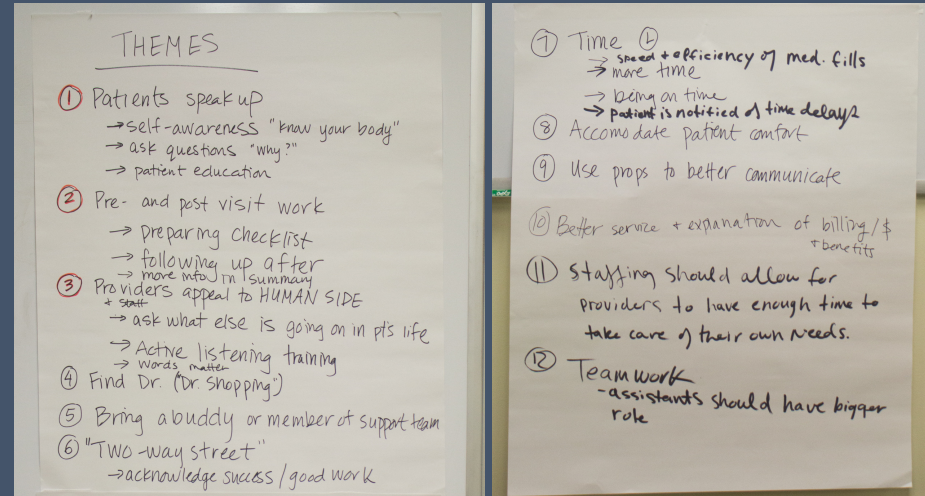 THEMES
① Patients speak up
→ self-awareness "know your body"
→ ask questions "why?"
→ patient education
② Pre- and post visit work
→ preparing checklist
→ following up after
→ more info in summary
③ Providers appeal to HUMAN SIDE
+ staff
→ ask what else is going on in pt's life
→ Active listening training
→ words matter
④ Find Dr. ("Dr. Shopping")
⑤ Bring a buddy or member of support team
⑥ "Two-way street"
→ acknowledge success / good work
⑦ Time
→ speed + efficiency of med. fills
→ more time
→ being on time
→ patient is notified of time delays
⑧ Accomodate patient comfort
⑨ Use props to better communicate
⑩ Better service + explanation of billing / $
+ benefits
⑪ Staffing should allow for
providers to have enough time to
take care of their own needs.
⑫ Teamwork
- assistants should have bigger
role